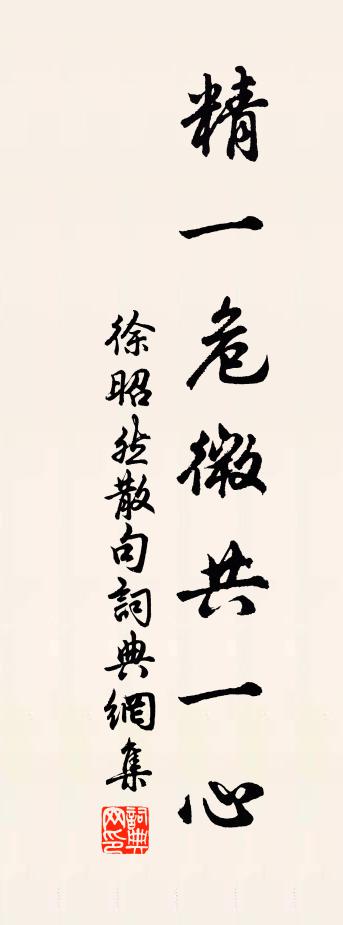 精一危微共一心
徐昭然散句詞典網集
詞典網印